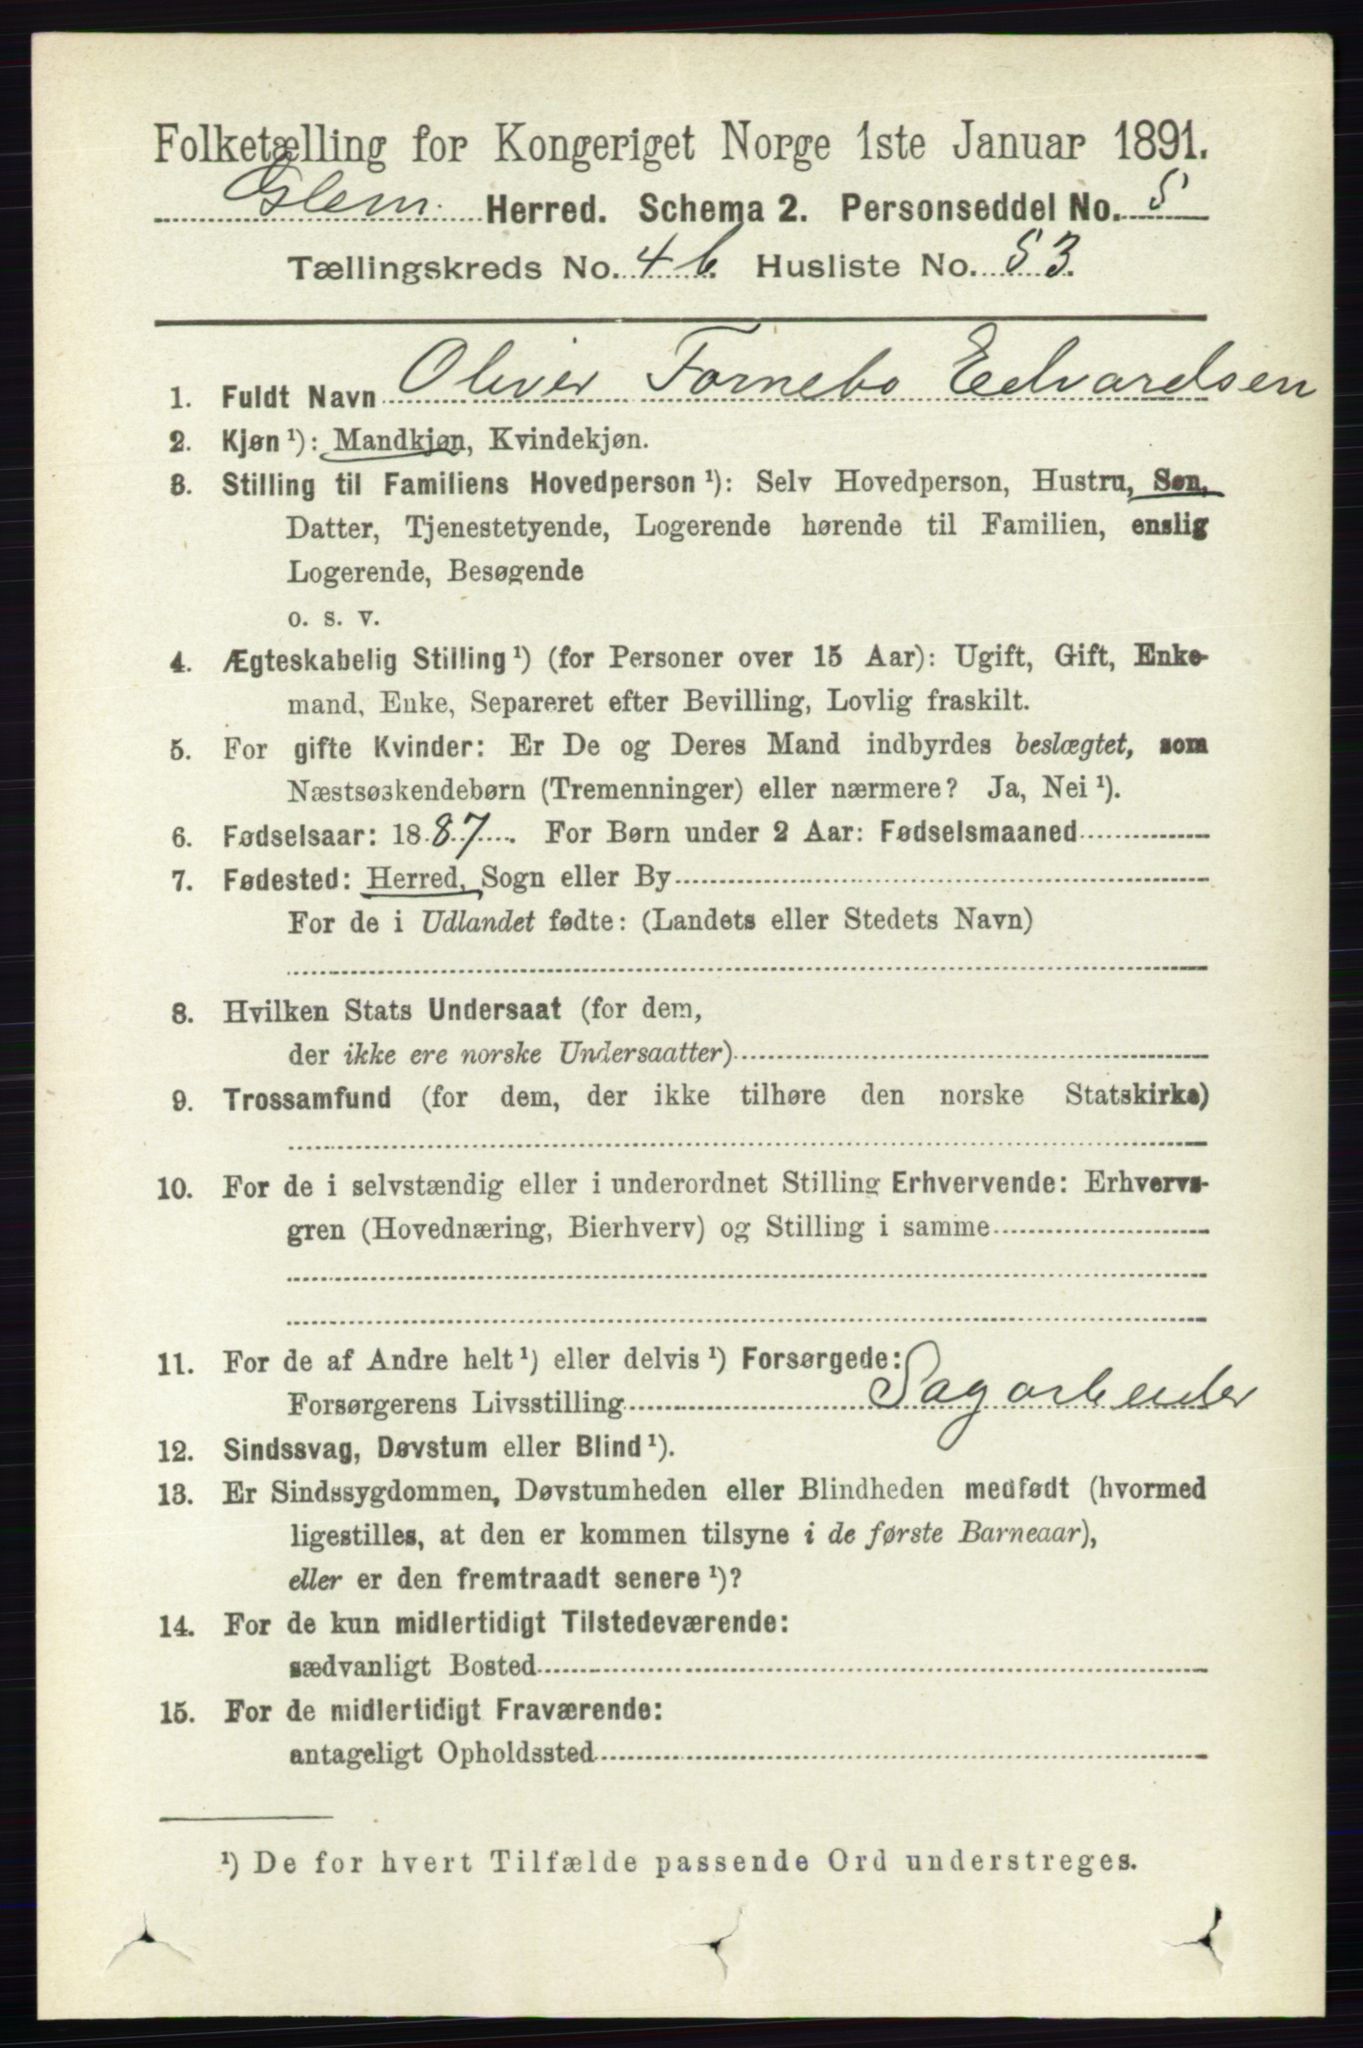 Folketælling for Kongeriget Norge 1ste Januar 1891.
Glem Herred. Schema 2. Personseddel No. 5
Tællingskreds No. 4 b. Husliste No. 53.
1. Fuldt Navn Oliver Fornebo Edvardsen
2. Kjøn ¹): Mandkjøn, Kvindekjøn.
3. Stilling til Familiens Hovedperson ¹): Selv Hovedperson, Hustru, Søn,
Datter, Tjenestetyende, Logerende hørende til Familien, enslig
Logerende, Besøgende
o. s. v.
4. Ægteskabelig Stilling ¹) (for Personer over 15 Aar): Ugift, Gift, Enke-
mand, Enke, Separeret efter Bevilling, Lovlig fraskilt.
5. For gifte Kvinder: Er De og Deres Mand indbyrdes beslægtet, som
Næstsøskendebørn (Tremenninger) eller nærmere? Ja, Nei ¹).
6. Fødselsaar: 1887. For Børn under 2 Aar: Fødselsmaaned
7. Fødested: Herred, Sogn eller By
For de i Udlandet fødte: (Landets eller Stedets Navn)
8. Hvilken Stats Undersaat (for dem,
der ikke ere norske Undersaatter)
9. Trossamfund (for dem, der ikke tilhøre den norske Statskirke)
10. For de i selvstændig eller i underordnet Stilling Erhvervende: Erhvervs-
gren (Hovednæring, Bierhverv) og Stilling i samme
11. For de af Andre helt ¹) eller delvis ¹) Forsørgede:
Forsørgerens Livsstilling Sagarbeider
12. Sindssvag, Døvstum eller Blind ¹).
13. Er Sindssygdommen, Døvstumheden eller Blindheden medfødt (hvormed
ligestilles, at den er kommen tilsyne i de første Barneaar),
eller er den fremtraadt senere ¹)?
14. For de kun midlertidigt Tilstedeværende:
sædvanligt Bosted
15. For de midlertidigt Fraværende:
antageligt Opholdssted
¹) De for hvert Tilfælde passende Ord understreges.